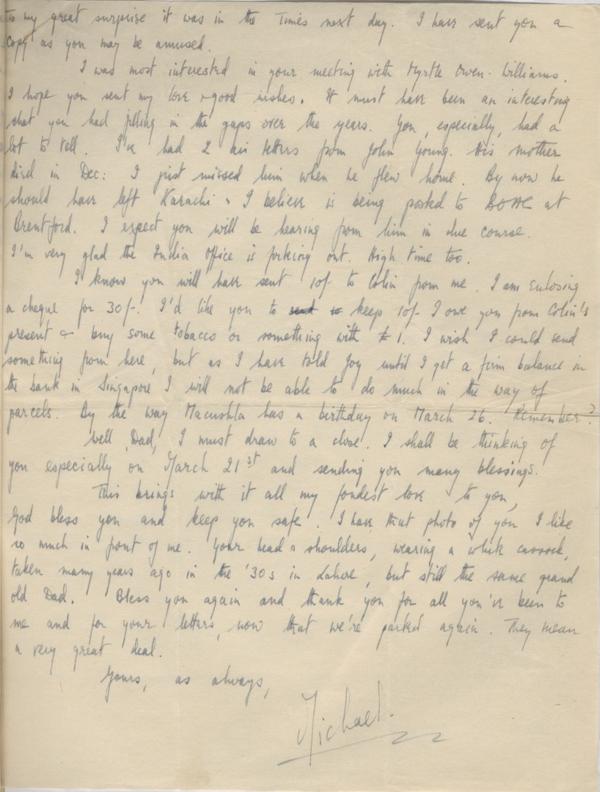 to my great surprise it was in the Times next day. I have sent you a
copy as you may be amused.
I was most interested in your meeting with Myrtle Owen-Williams.
I hope you sent my love & good wishes. It must have been an interesting
chat you had filling in the gaps over the years. You, especially, had a
lot to tell. I've had 2 air letters from John Young. His mother
died in Dec: I just missed him when he flew home. By now he
should have left Karachi & I believe is being posted to BOAC at
Brentford. I expect you will be hearing from him in due course.
I'm very glad the India Office is forking out. High time too.
I know you will have sent 10/- to Colin from me. I am enclosing
a cheque for 30/-. I'd like you to send to keep 10/- I owe you from Colin's
present & buy some tobacco or something with £1. I wish I could send
something from here, but as I have told Joy until I get a firm balance in
the bank in Singapore I will not be able to do much in the way of
parcels. By the way Macushla has a birthday on March 26. Remember?
Well, Dad, I must draw to a close. I shall be thinking of
you especially on March 21st and sending you many blessings.
This brings with it all my fondest love to you,
God bless you and keep you safe. I have that photo of you I like
so much in front of me. Your head & shoulders, wearing a white cassock,
taken many years ago in the '30s in Lahore, but still the same grand
old Dad. Bless you again and thank you for all you've been to
me and for your letters, now that we're parted again. They mean
a very great deal.
Yours, as always,
Michael.